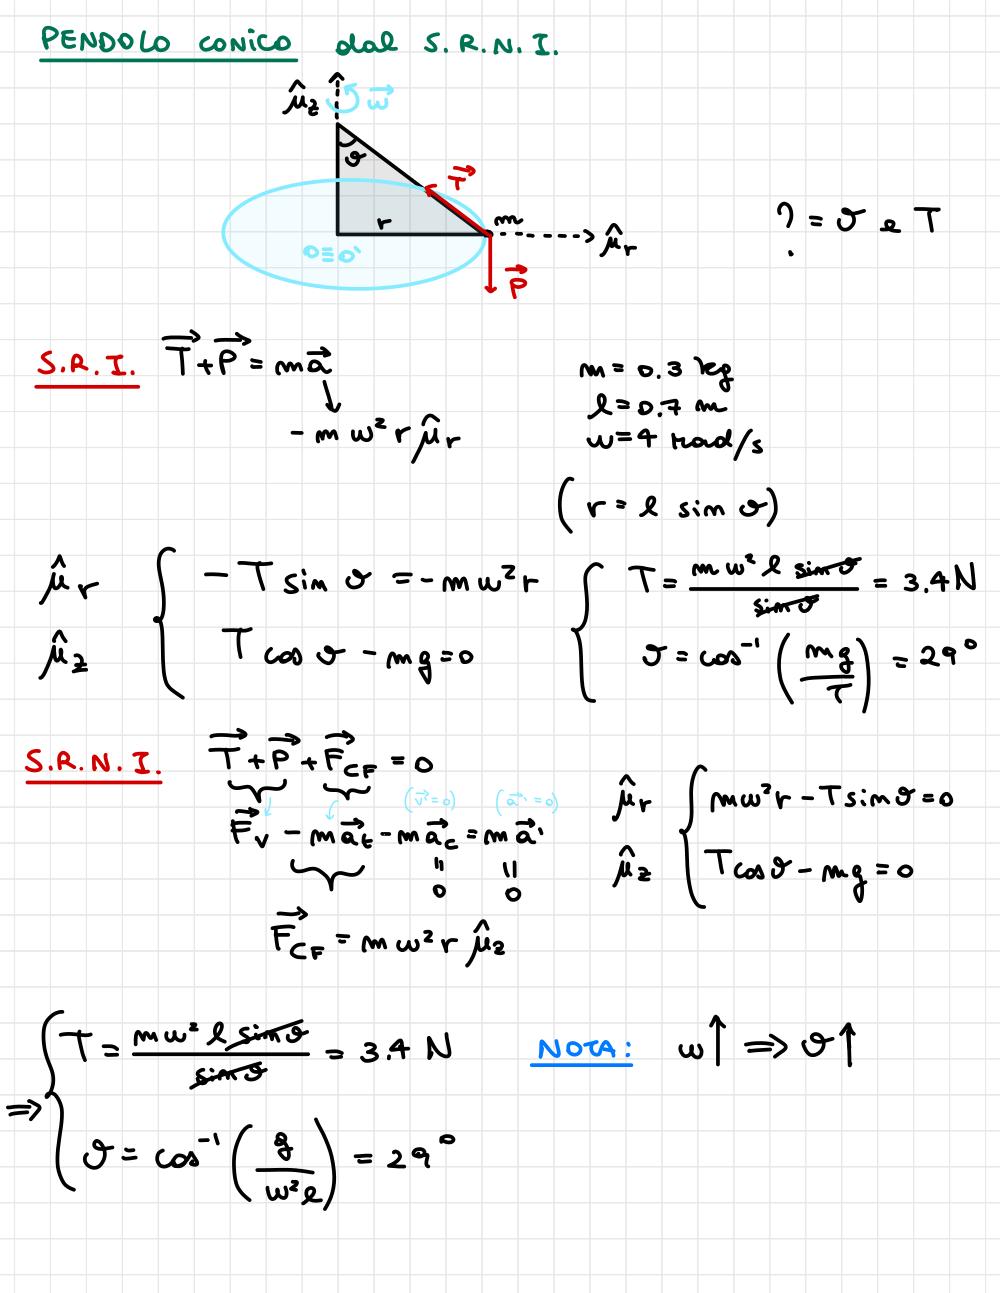 PENDOLO CONICO dal S.R.N.I.
μ̂z ω⃗
ϑ
T⃗
r m μ̂r
O≡O'
P⃗
? = ϑ e T
S.R.I. T⃗ + P⃗ = ma⃗
- m ω² r μ̂r
m = 0.3 kg
l = 0.7 m
ω = 4 rad/s
(r = l sin ϑ)
μ̂r { - T sin ϑ = - m ω² r
μ̂z { T cos ϑ - mg = 0
{ T = m ω² l sin ϑ / sin ϑ = 3.4 N
{ ϑ = cos⁻¹ (mg / T) = 29°
S.R.N.I. T⃗ + P⃗ + F⃗CF = 0
(v⃗' = 0) (a⃗' = 0)
F⃗v - ma⃗t - ma⃗c = ma⃗'
" "
0 0
F⃗CF = m ω² r μ̂z
μ̂r { mω² r - T sin ϑ = 0
μ̂z { T cos ϑ - mg = 0
⇒ { T = m ω² l sin ϑ / sin ϑ = 3.4 N
{ ϑ = cos⁻¹ (g / ω² l) = 29°
NOTA: ω↑ ⇒ ϑ↑